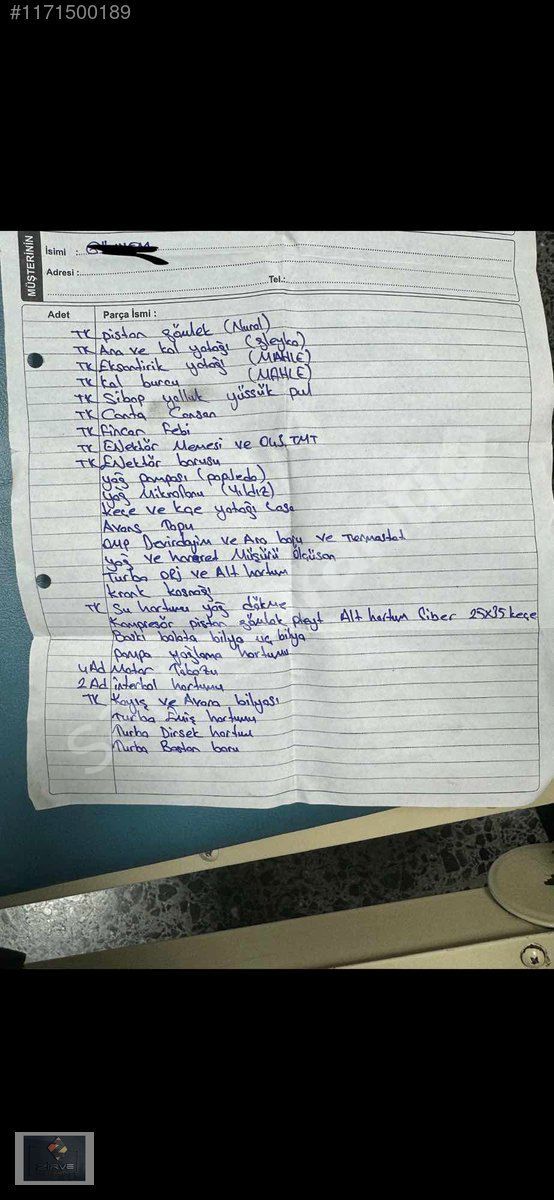 #1171500189
MÜŞTERİNİN
İsimi :
Adresi :
Tel.:
Adet Parça İsmi :
TK piston gömlek (Nural)
TK Ana ve kol yatağı (gleyko)
TK Eksandirik yatağı (MAHLE)
TK kol burcu (MAHLE)
TK Sibop yolluk yüssük pul
TK Conta Consan
TK fincan febi
TK ENektör Memesi ve
TK ENektör borusu
yağ pompası (popleda)
yağ Mikrofonu (Yıldız)
keçe ve kçe yatağı Case
Avans Topu
Devirdayim ve Ara boru ve Termostat
yağ ve hararet Müşürü ölçüsan
Turbo orj ve Alt hortum
krank kasnağı
TK Su hortumu yağ dökme
Kompresör piston gömlek pleyt Alt hortum fiber 25x35 keçe
Baskı balata bilya uç bilya
Pompa yağlama hortumu
4 Ad Motor Takozu
2 Ad interkol hortumu
TK Kayış ve Avara bilyası
Turbo Emiş hortumu
Turbo Dirsek hortum
Turbo Baston boru
ZİRVE